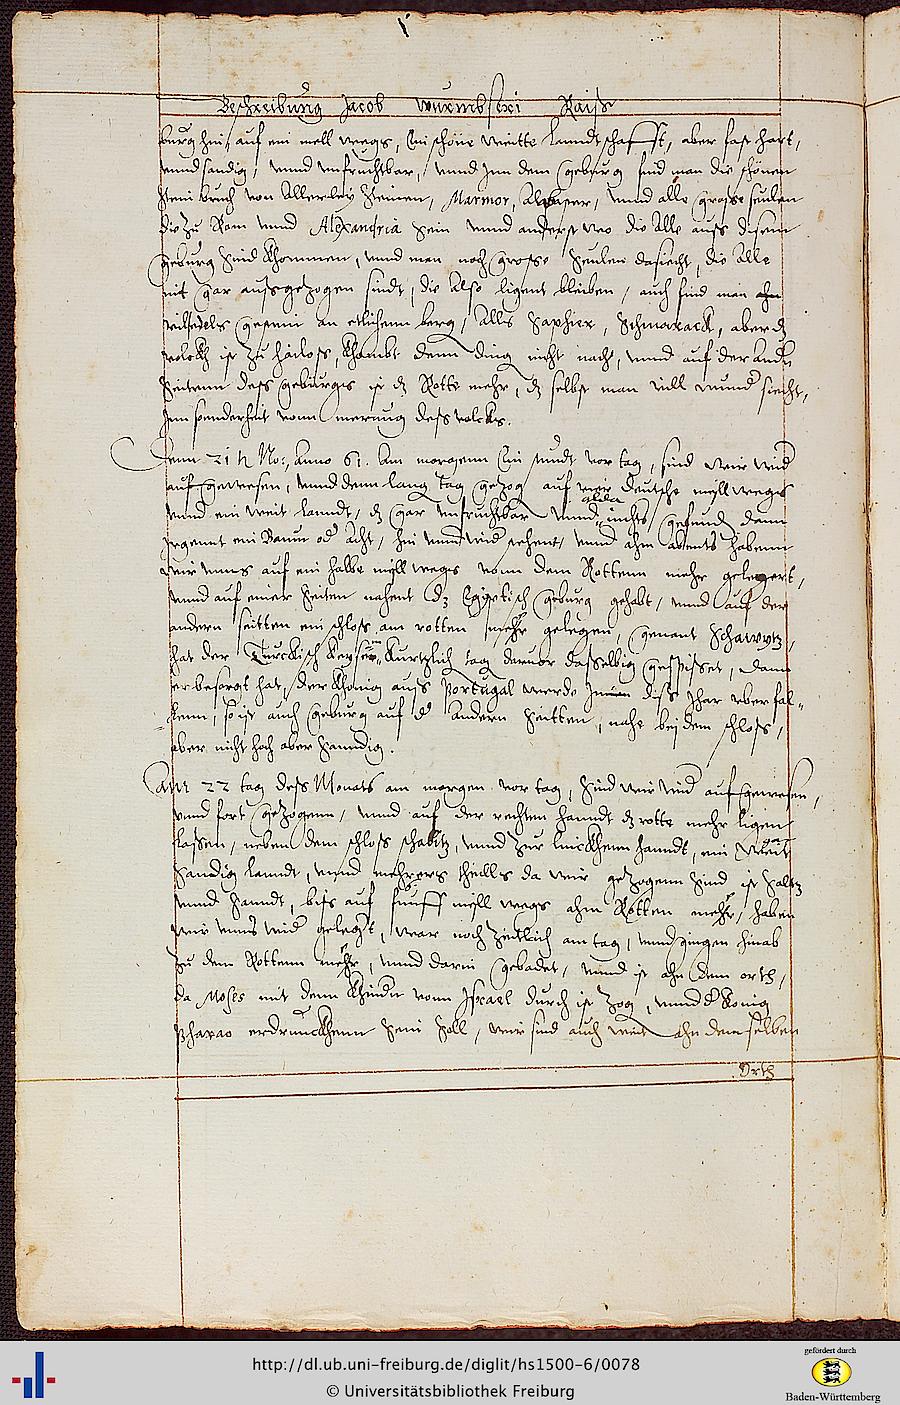 Beschreibung Jacob Wurmbseri Raiß
burg hin, auf ein mell wegs, Ein schöne weitte Lanndtschafft, aber fast hart,
unnd sandig, unnd unfruchtbar, unnd Inn dem Geburg find man die schönen
stein bruch von Allerley Steinen, Marmor, Alabaster, unnd alle grosse seulen
die zu Rom unnd Alexandria sein unnd anderst wo die Alle auss disem
Geburg sind khommen, unnd man noch grosse Seulen da siecht, die Alle
nit gar aussgezogen sindt, die Also ligent bleiben, auch find man
edels gestein an etlichem berg, Alls Saphier, Schmarack, aber dz
volckh ist zu hailoss, khombt dem ding nicht nach, unnd auf der andn
Seitenn dess geburgs ist dz Rotte mehr, dz selbst man vill wund siecht,
Inn sonderheit vonn dess volcks.
Denn 21 h No:, Anno 61. Am morgenn Ein stundt vor tag, sind wir wid
auf gewesen, unnd denn lang tag gezog auf vier deutsche mell wegs
alda
unnd ein weit Lanndt, dz gar unfruchtbar unnd nichts gefund dann
irgent ein Baum od acht, hin unnd wid stehent, unnd ahm abents habenn
wir unns auf ein halbe mell wegs vonn dem Rottenn mehr gelegert,
unnd auf einer Seiten nahent dz Egiptisch Geburg gehabt, unnd auf der
andern seitten ein schloss am rotten mehr gelegen, genant Schawytz,
hat der Turckisch Keyser kurtzlich tag davor dasselbig gespisset, dann
er besorgt hat, der khonig auss Portugal werde Inn diss Jhar uber fal-
lenn, so ist auch Geburg auf d andern Seitten, nahe bej dem schloss,
aber nicht hoch aber sanndig.
Am 22 tag dess Monats am morgen vor tag, sind wir wid auf gewesen,
unnd fort gezogenn, unnd auf der rechten hanndt dz rotte mehr ligen
lassen, neben dem schloss schabitz, unnd zur linckhenn hanndt, ein gar weit
sandig Lanndt, unnd mehrers theills da wir gezogenn sind ist Saltz
unnd Sanndt, biss auf funff mell wegs ahm Rotten mehr, haben
wir unns wid gelegert, war noch zeitlich am tag, unnd gingen hinab
zu dem Rottenn mehr, unnd darin gebadet, unnd ist ahn dem orth,
da Moses mit denn khindn vonn Israel durch ist zog, unnd d konig
Pharao erdrunckhenn sein soll, wir sind auch weit ahn demselben
Orth
http://dl.ub.uni-freiburg.de/diglit/hs1500-6/0078
© Universitätsbibliothek Freiburg
gefördert durch
Baden-Württemberg